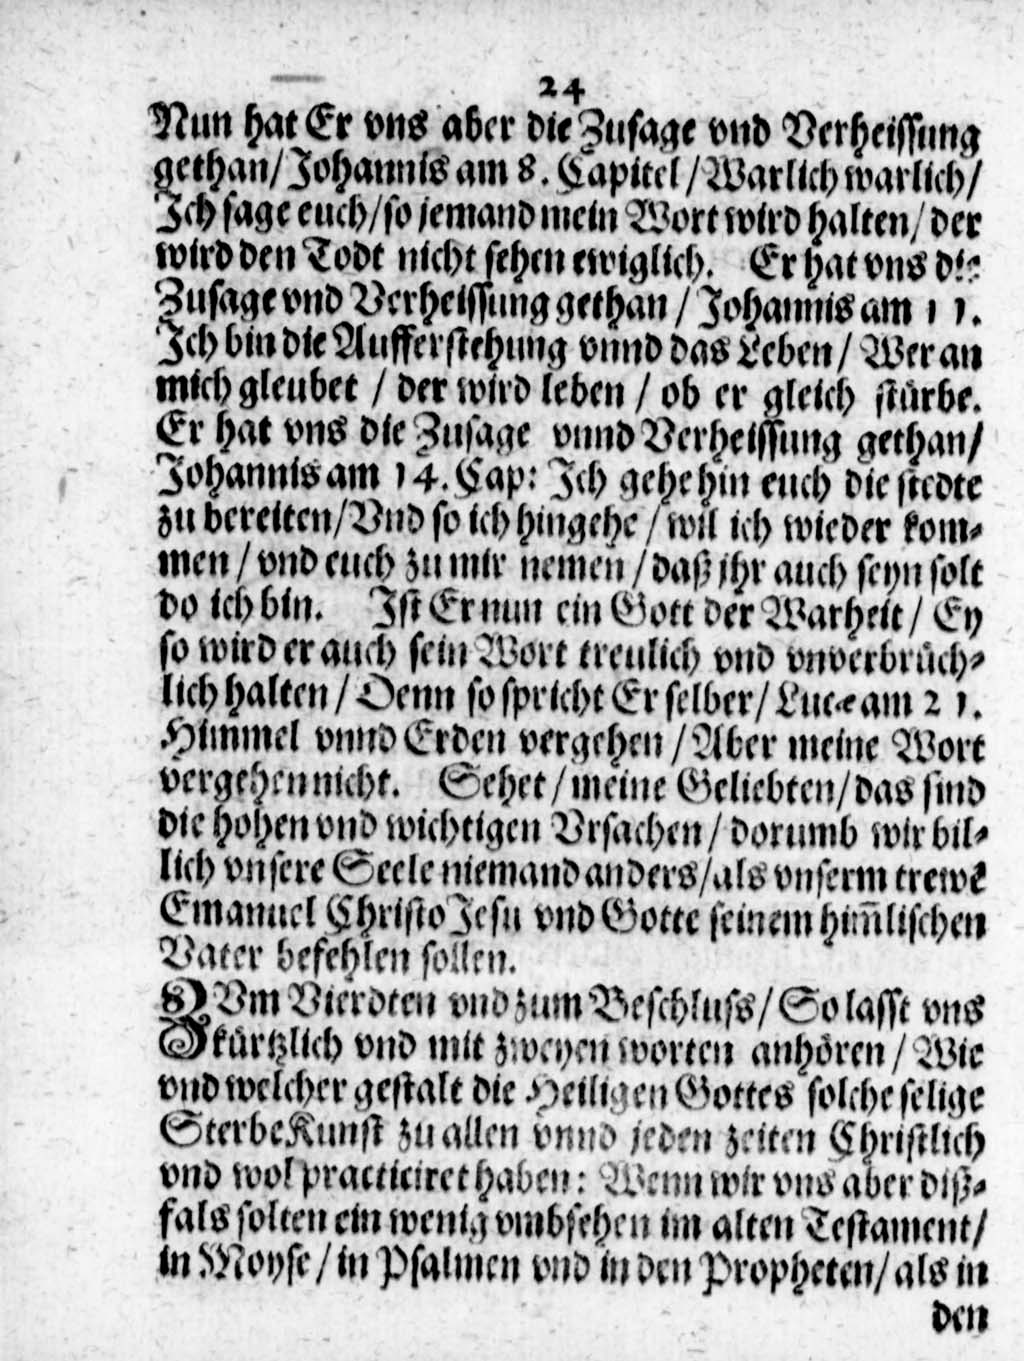 24
Nun hat Er vns aber die Zusage vnd Verheissung
gethan/ Johannis am 8. Capitel / Warlich warlich/
Jch sage euch/ so jemand mein Wort wird halten/ der
wird den Todt nicht sehen ewiglich. Er hat vns die
Zusage vnd Verheissung gethan / Johannis am 11.
Jch bin die Aufferstehung vnnd das Leben / Wer an
mich gleubet / der wird leben / ob er gleich stürbe.
Er hat vns die Zusage vnnd Verheissung gethan/
Johannis am 14. Cap: Jch gehe hin euch die stedte
zu bereiten/ Vnd so ich hingehe / wil ich wieder kom-
men / vnd euch zu mir nemen / daß jhr auch seyn solt
do ich bin. Jst Er nun ein Gott der Warheit / Ey
so wird er auch sein Wort treulich vnd vnverbrüch-
lich halten / Denn so spricht Er selber/ Lucæ am 21.
Himmel vnnd Erden vergehen / Aber meine Wort
vergehen nicht. Sehet / meine Geliebten/ das sind
die hohen vnd wichtigen Vrsachen / dorumb wir bil-
lich vnsere Seele niemand anders/ als vnserm trewē
Emanuel Christo Jesu vnd Gotte seinem him̄lischen
Vater befehlen sollen.
ZVm Vierdten vnd zum Beschluss/ So lasst vns
kürtzlich vnd mit zweyen worten anhören / Wie
vnd welcher gestalt die Heiligen Gottes solche selige
SterbeKunst zu allen vnnd jeden zeiten Christlich
vnd wol practiciret haben: Wenn wir vns aber diß-
fals solten ein wenig vmbsehen im alten Testament/
in Moyse / in Psalmen vnd in den Propheten/ als in
den